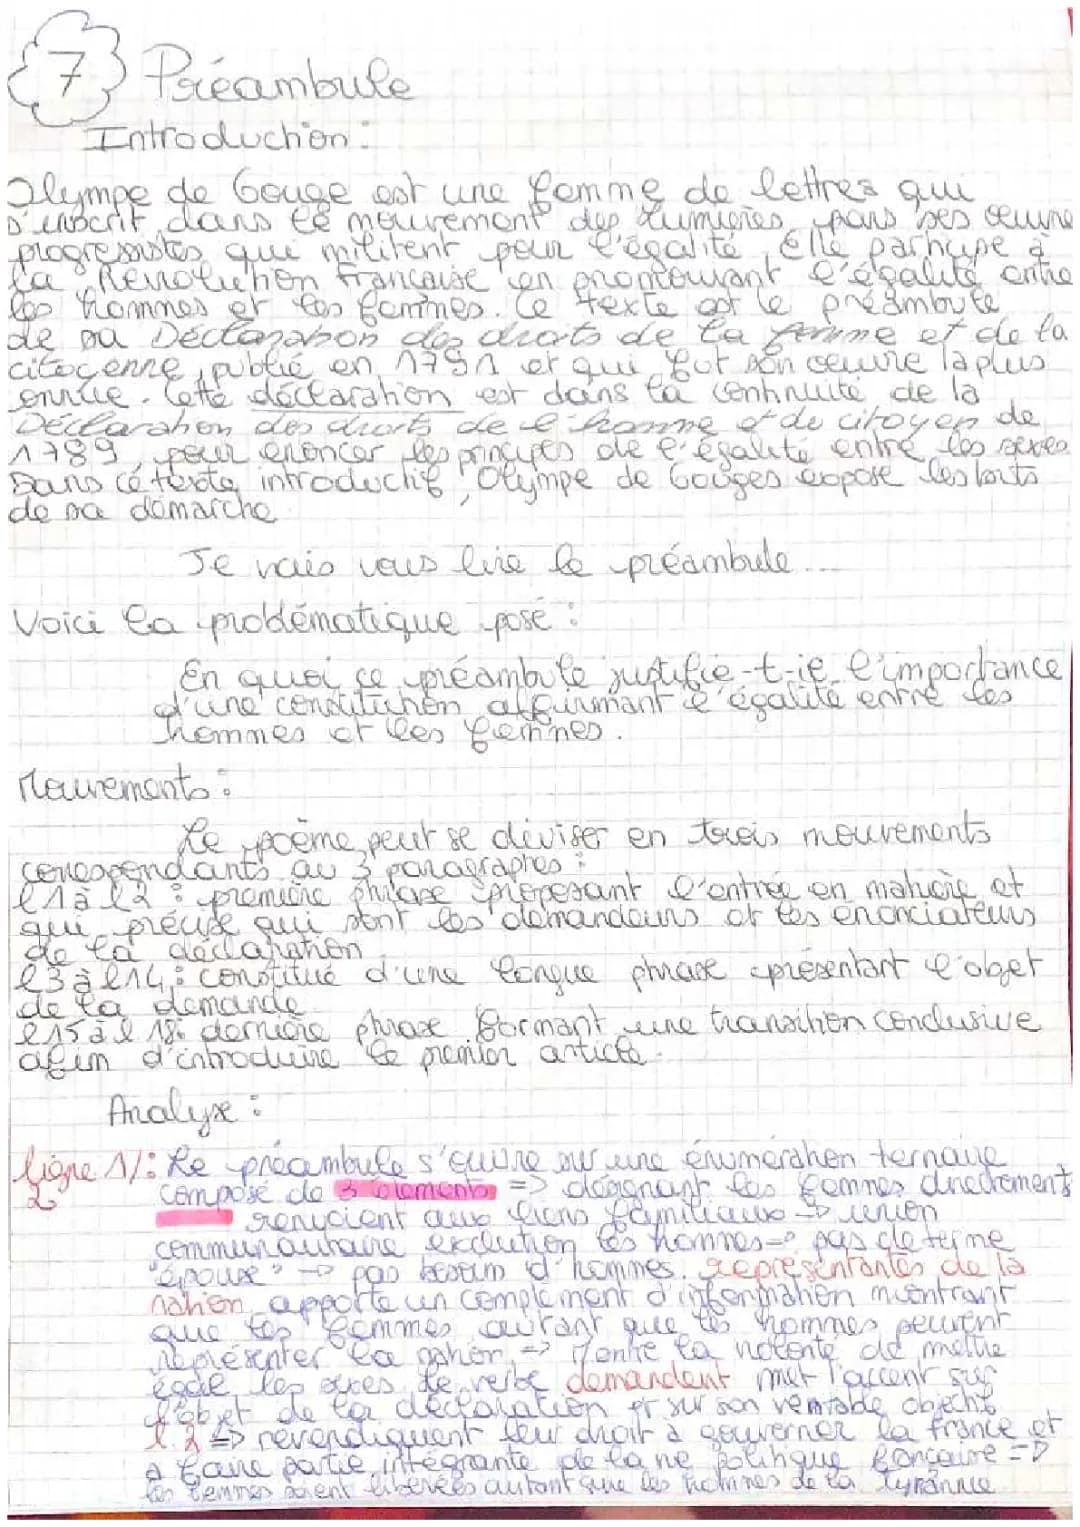 7 Préambule
Introduction :
Olympe de Gouge est une femme de lettres qui
s'inscrit dans le mouvement des Lumières, pars ses œuvre
progressistes qui militent pour l'égalité, Elle participe à
la Révolution Française en promouvant l'égalité entre
les hommes et les femmes. Ce texte est le préambule
de sa Déclaration des droits de la femme et de la
citoyenne, publié en 1791 et qui fut son œuvre la plus
connue. Cette déclaration est dans la continuité de la
Déclaration des droits de l'homme et du citoyen de
1789, pour énoncer les principes de l'égalité entre les sexes.
Dans ce texte introductif, Olympe de Gouges expose les buts
de sa démarche
Je vais vous lire le préambule ...
Voici la problématique posé :
En quoi ce préambule justifie-t-il l'importance
d'une constitution affirmant l'égalité entre les
hommes et les femmes.
Mouvements :
Le poème peut se diviser en trois mouvements
correspondants au 3 paragraphes :
l1 à l2 : première phrase proposant l'entrée en matière et
qui précise qui sont les demandeurs et les énonciateurs
de la déclaration
l3 à l14 : constitué d'une longue phrase présentant l'objet
de la demande
l15 à l18 : dernière phrase formant une transition conclusive
afin d'introduire le premier article.
Analyse :
ligne 1/ : Le préambule s'ouvre sur une énumération ternaire
2 composé de 3 éléments => désignant les femmes directement
renvoient aux liens familiaux -> union
communautaire exclution les hommes => pas de terme
"épouse" -> pas besoin d'hommes. représentantes de la
nation apporte un complément d'information montrant
que les femmes autant que les hommes peuvent
représenter la nation => Montre la volonté de mettre
égale les sexes. Le verbe demandent met l'accent sur
l'objet de la déclaration et sur son véritable objectif
l.2 => revendiquent leur droit à gouverner la france et
à faire partie intégrante de la vie politique française =>
les femmes soient libérées autant que les hommes de la tyrannie